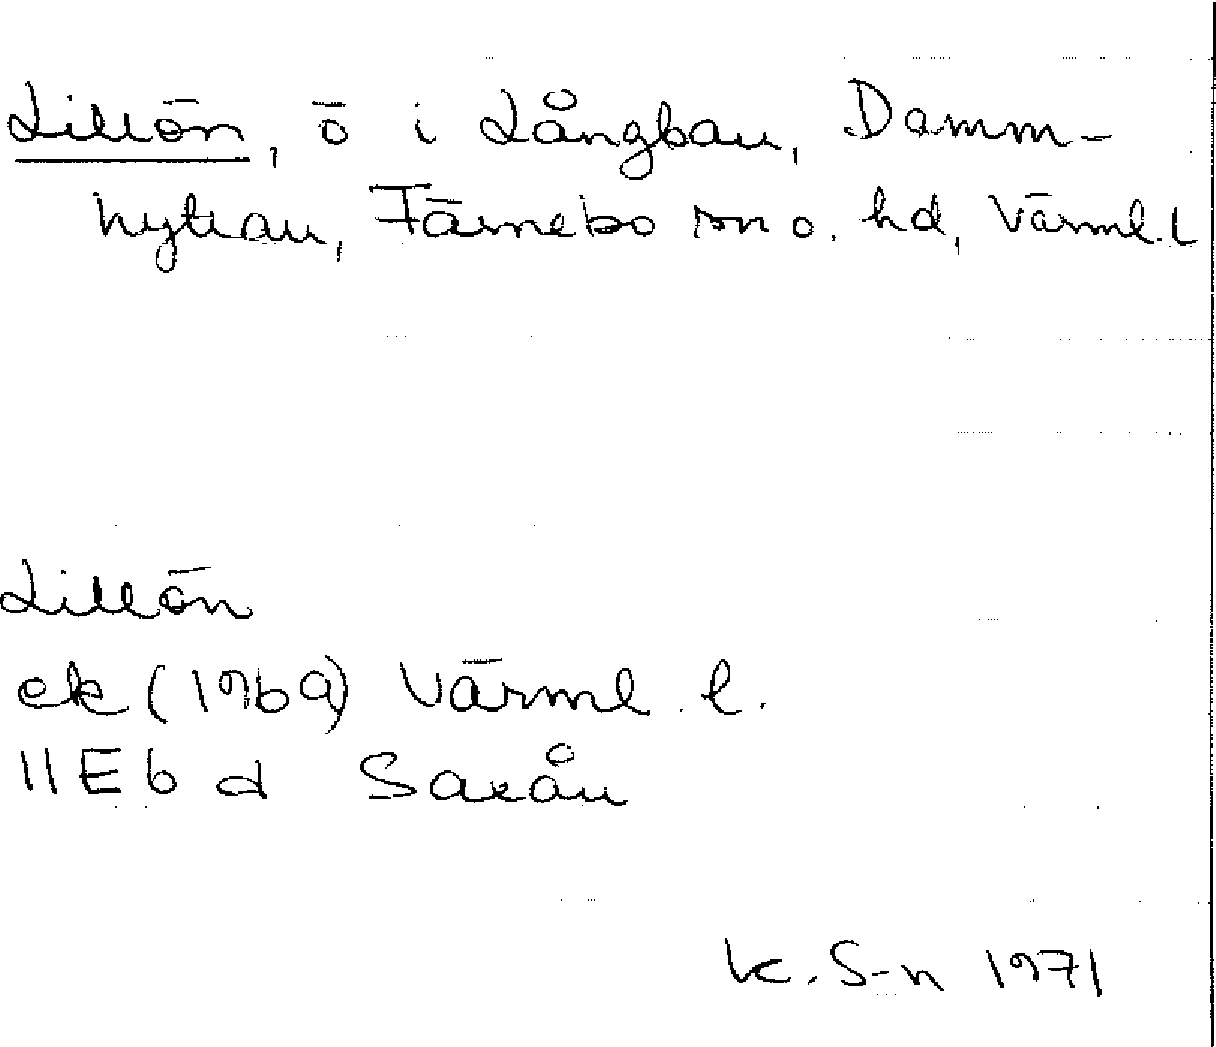 Lillön, ö i Långban, Damm-
hyttan, Färnebo sn o. hd, Värml. l
Lillön
ek (1969) Värml. l.
11E6 d Saxån
K. S-n 1971